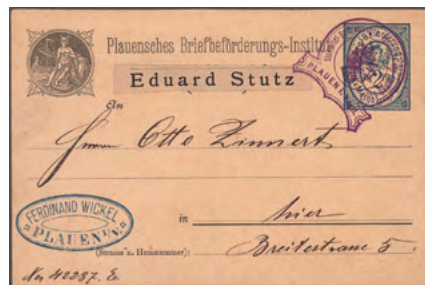 Plauensches Briefbeförderungs-Institut
Eduard Stutz
An
Herrn Otto Zinnert
PLAUEN i.
FERDINAND WICKEL
PLAUEN i/V.
in hier
(Strasse u. Hausnummer): Breitestrasse 5.